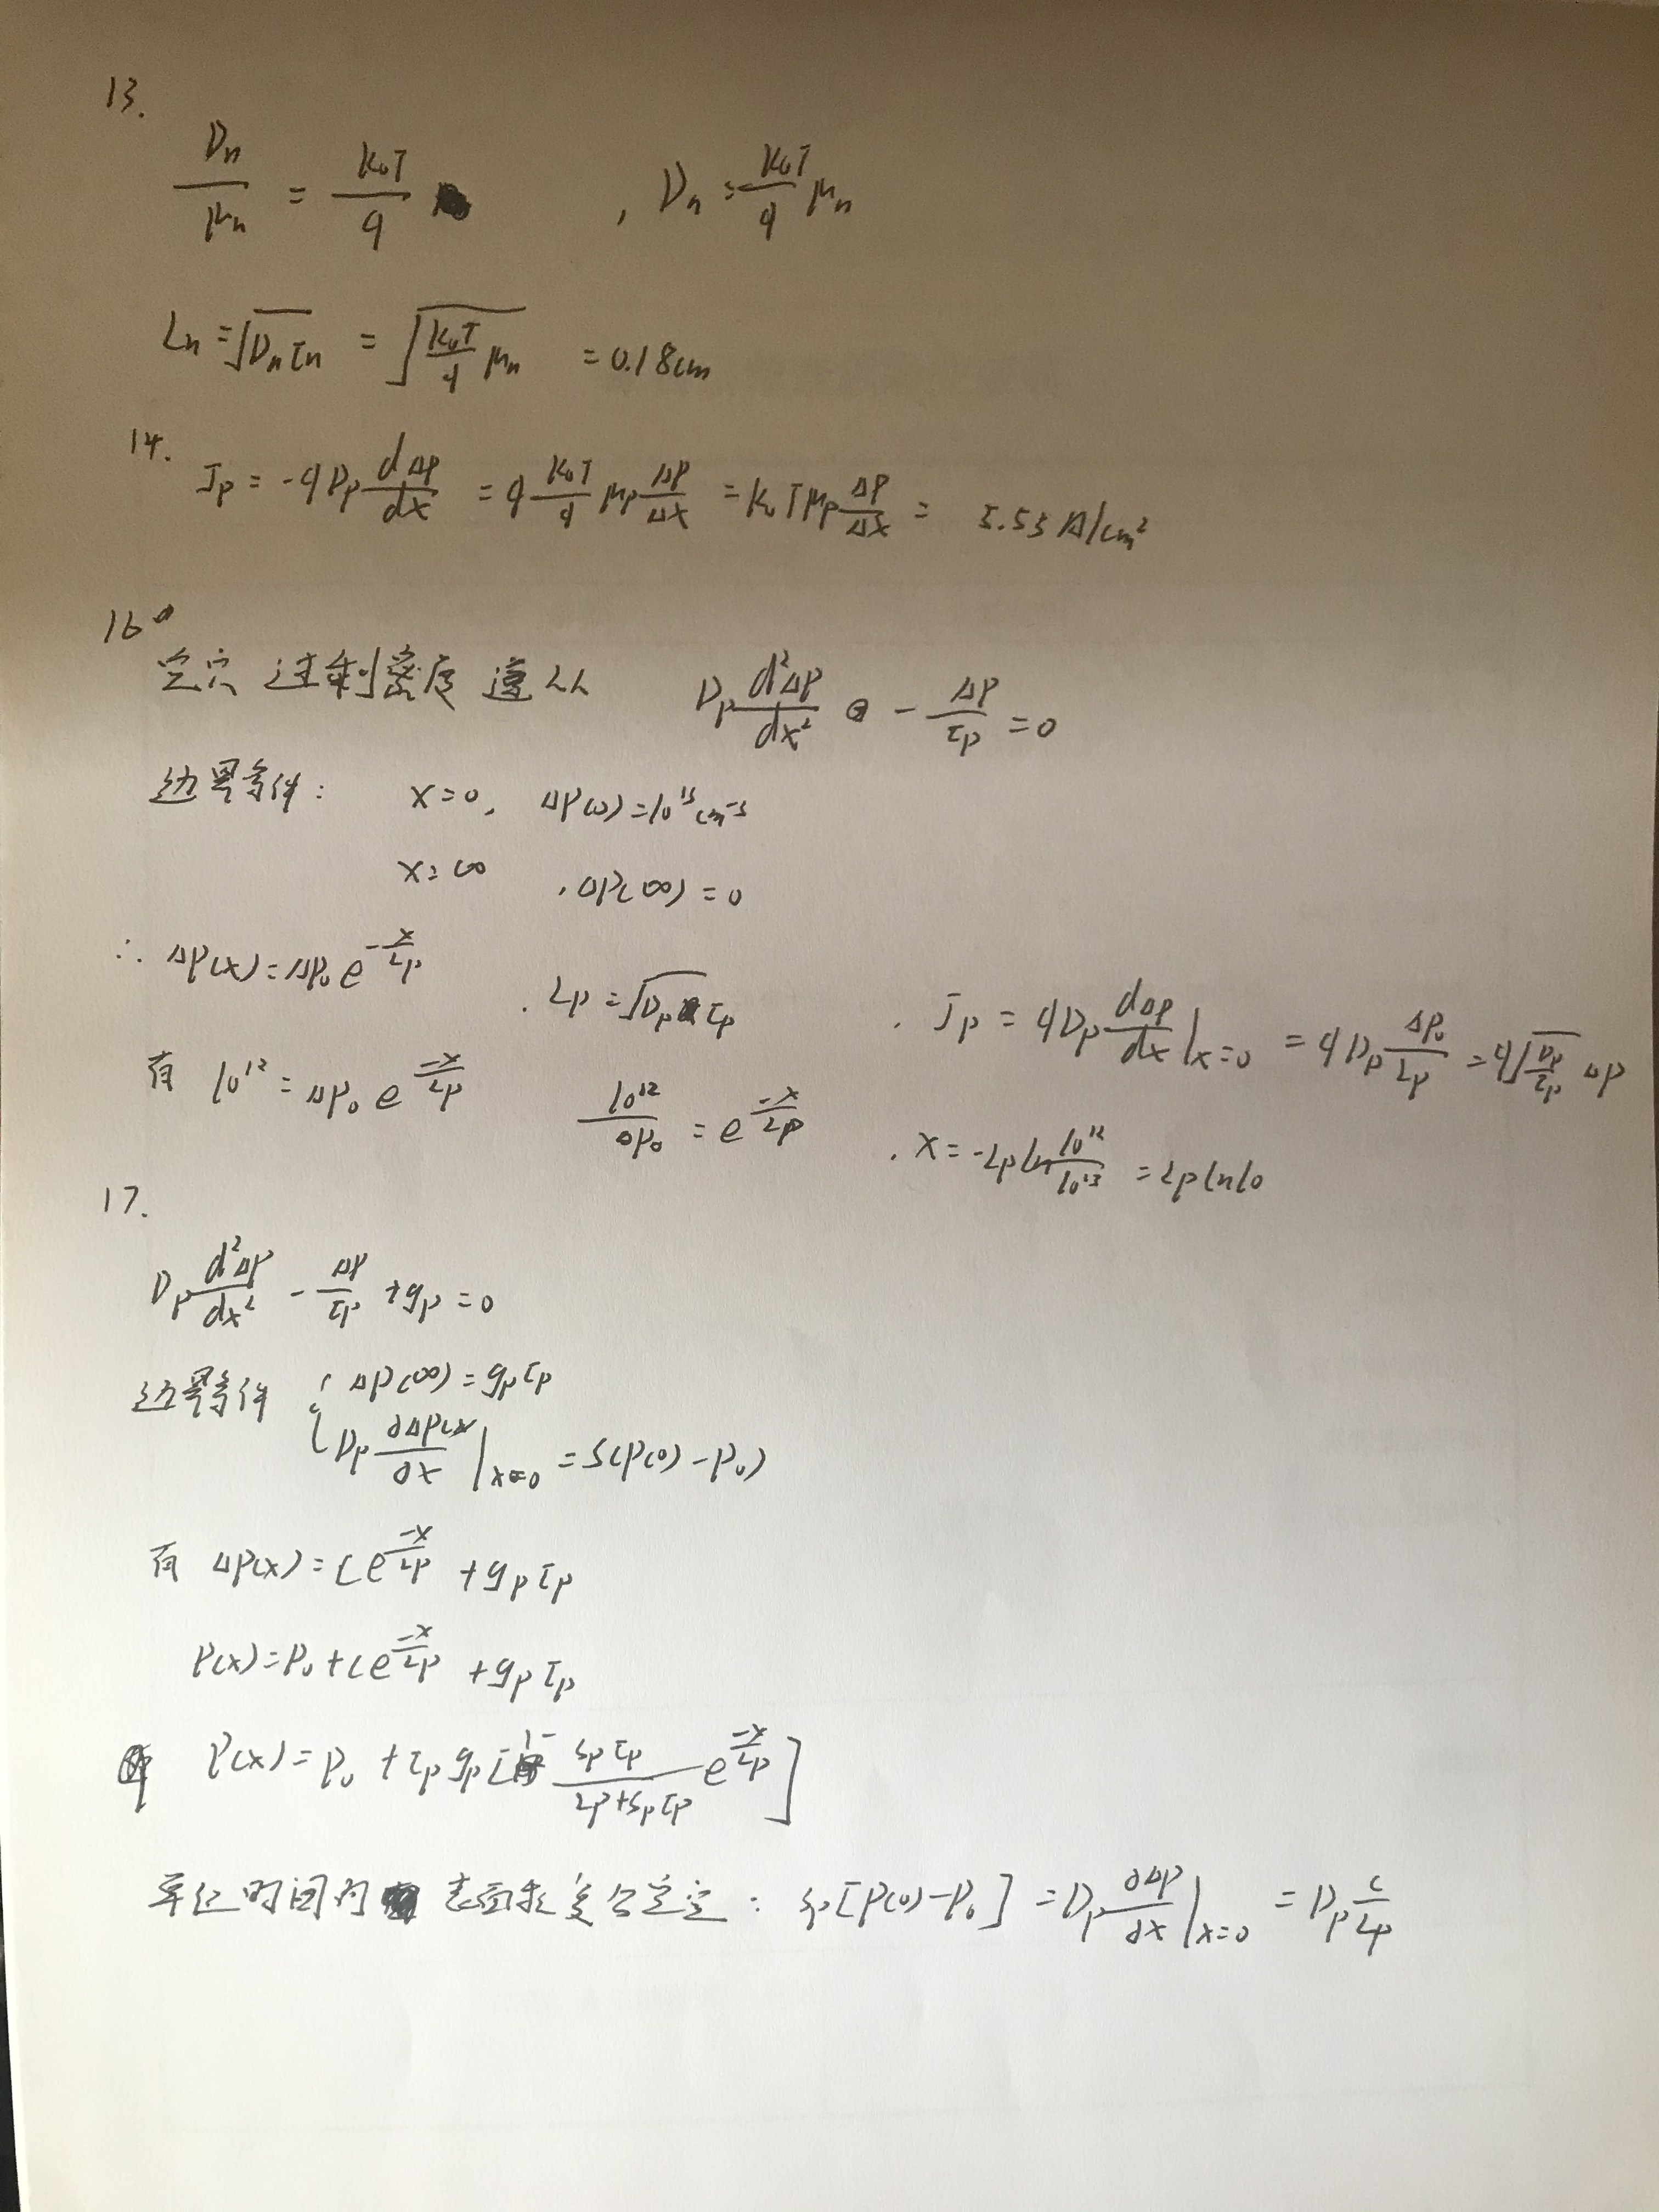 13.
Dn/μn = k₀T/q , Dn = k₀T/q μn
Ln = √(Dnτn) = √(k₀T/q μn) = 0.18cm
14. Jp = -qDp dΔp/dx = q k₀T/q μp Δp/Δx = k₀Tμp Δp/Δx = 5.53 A/cm²
16
空穴过剩密度遵从 Dp d²Δp/dx² - Δp/τp = 0
边界条件: x=0, Δp(0)=10¹³cm⁻³
x=∞ , Δp(∞)=0
∴ Δp(x)=Δp₀e^(-x/Lp) . Lp=√(Dpτp) . Jp = qDp dΔp/dx|x=0 = qDp Δp₀/Lp = q√(Dp/τp) Δp
有 10¹² = Δp₀ e^(-x/Lp) 10¹²/Δp₀ = e^(-x/Lp) . x = -Lp ln 10¹²/10¹³ = Lp ln10
17.
Dp d²Δp/dx² - Δp/τp + gp = 0
边界条件 { Δp(∞) = gpτp
Dp ∂Δp(x)/∂x|x=0 = S(p(0)-p₀)
有 Δp(x) = Ce^(-x/Lp) + gpτp
p(x) = p₀ + Ce^(-x/Lp) + gpτp
p(x) = p₀ + τpgp[1- Spτp/(Lp+Spτp) e^(-x/Lp)]
单位时间内表面积复合空穴: Sp[p(0)-p₀] = Dp ∂Δp/∂x|x=0 = Dp C/Lp